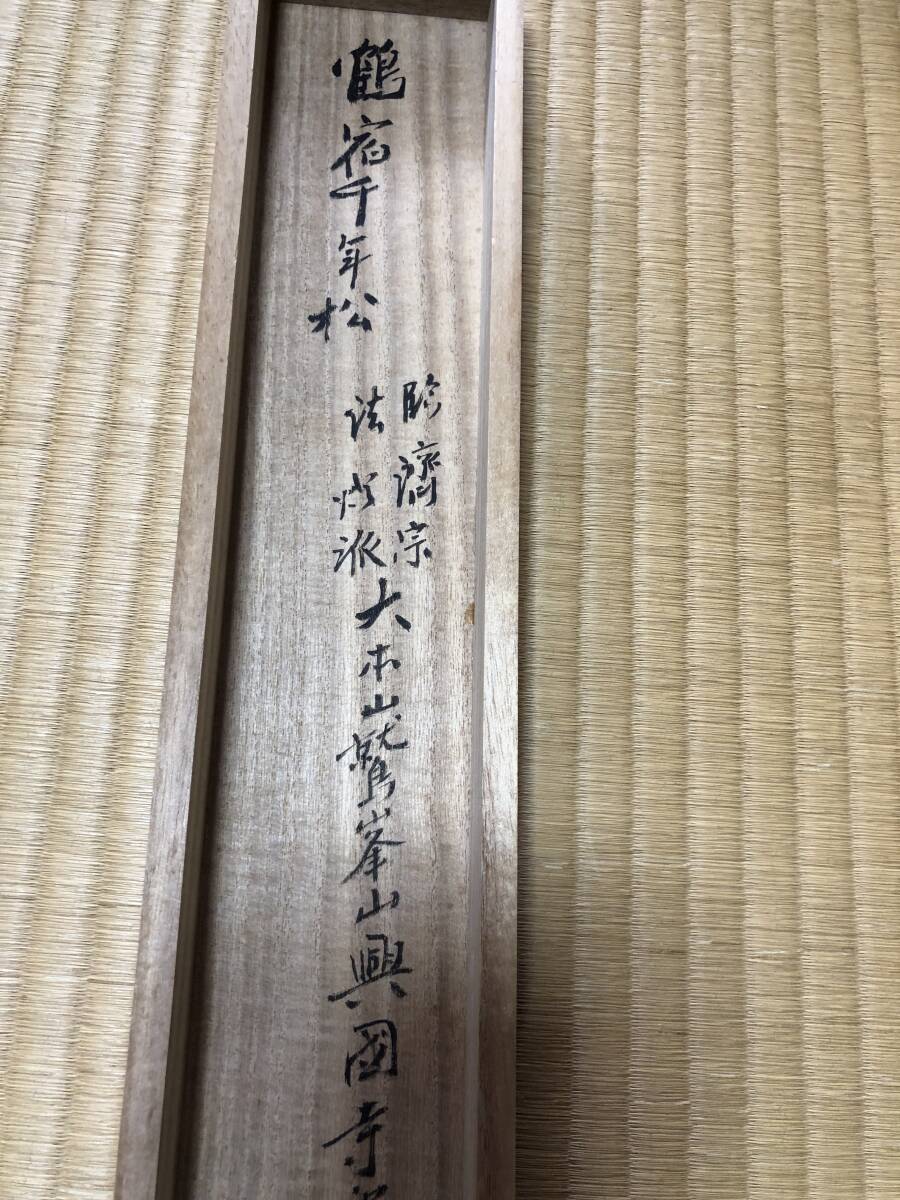 鶴宿千年松
臨濟宗
法燈派
大本山鷲峯山興國寺